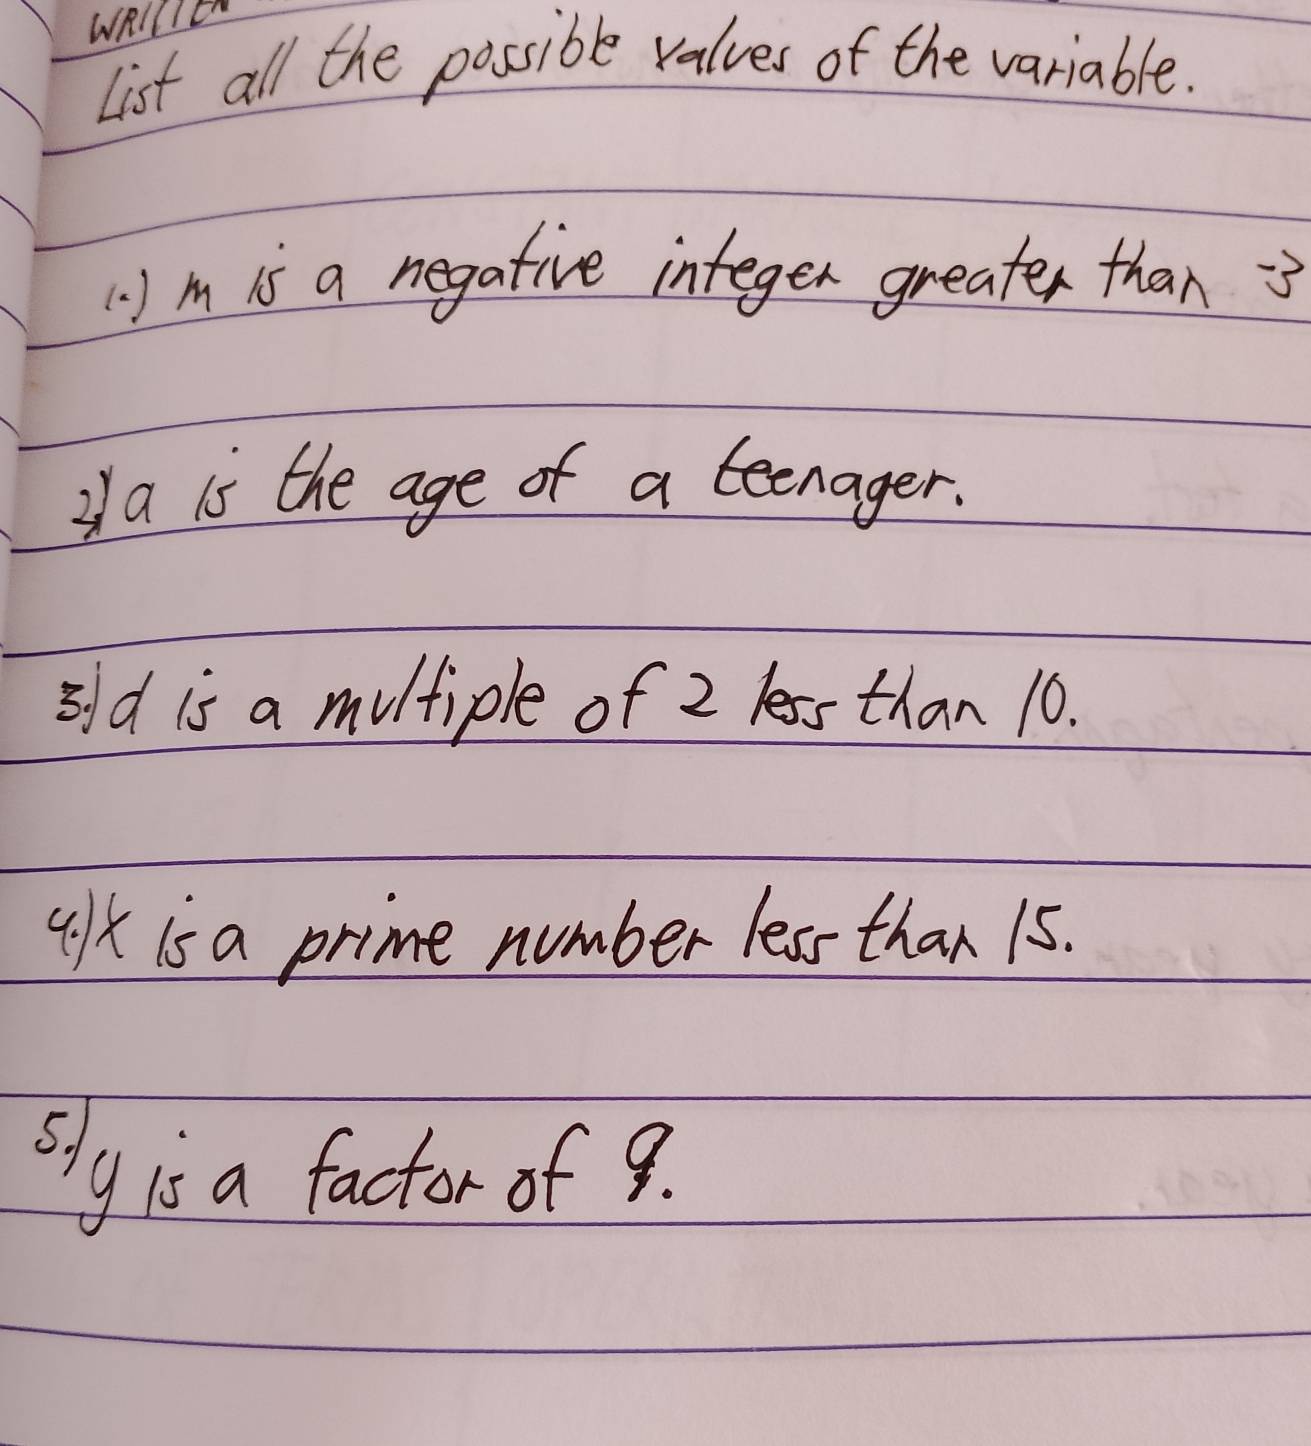 WRITTEN
List all the possible values of the variable.
1.) m is a negative integer greater than -3
2.) a is the age of a teenager.
3.) d is a multiple of 2 less than 10.
4.) x is a prime number less than 15.
5.) y is a factor of 9.